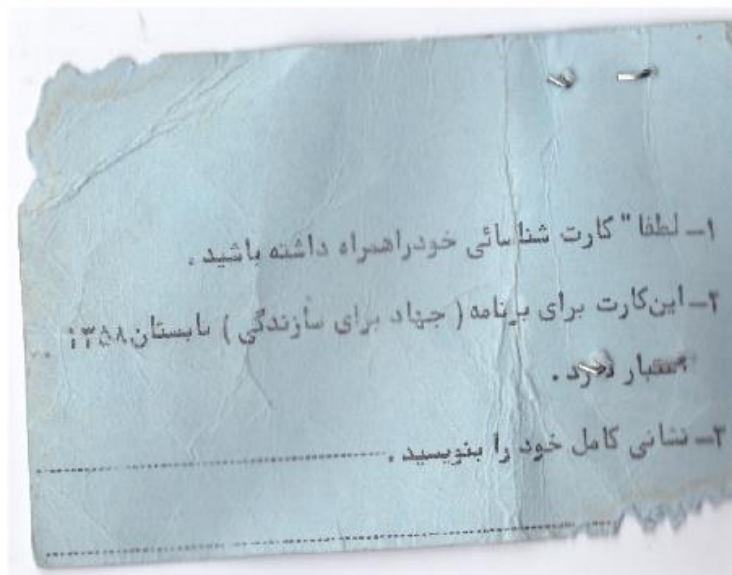 ۱- لطفا" کارت شناسائی خودراهمراه داشته باشید .
۲- این‌کارت برای برنامه ( جهاد برای سازندگی ) تابستان ۱۳۵۸
اعتبار دارد .
۳- نشانی کامل خود را بنویسید .